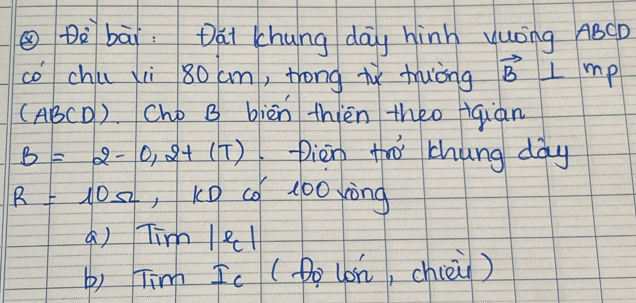 ⊛ Đề bài: Đặt khung dây hình vuông ABCD
có chu vi 80 cm, trong từ trường B⃗ ⊥ mp
(ABCD). Cho B biến thiên theo tgian
B = 2 - 0,2t (T). Điện trở khung dây
R = 10Ω, KD có 100 vòng
a) Tìm |ec|
b) Tìm Ic (Độ lớn, chiều)